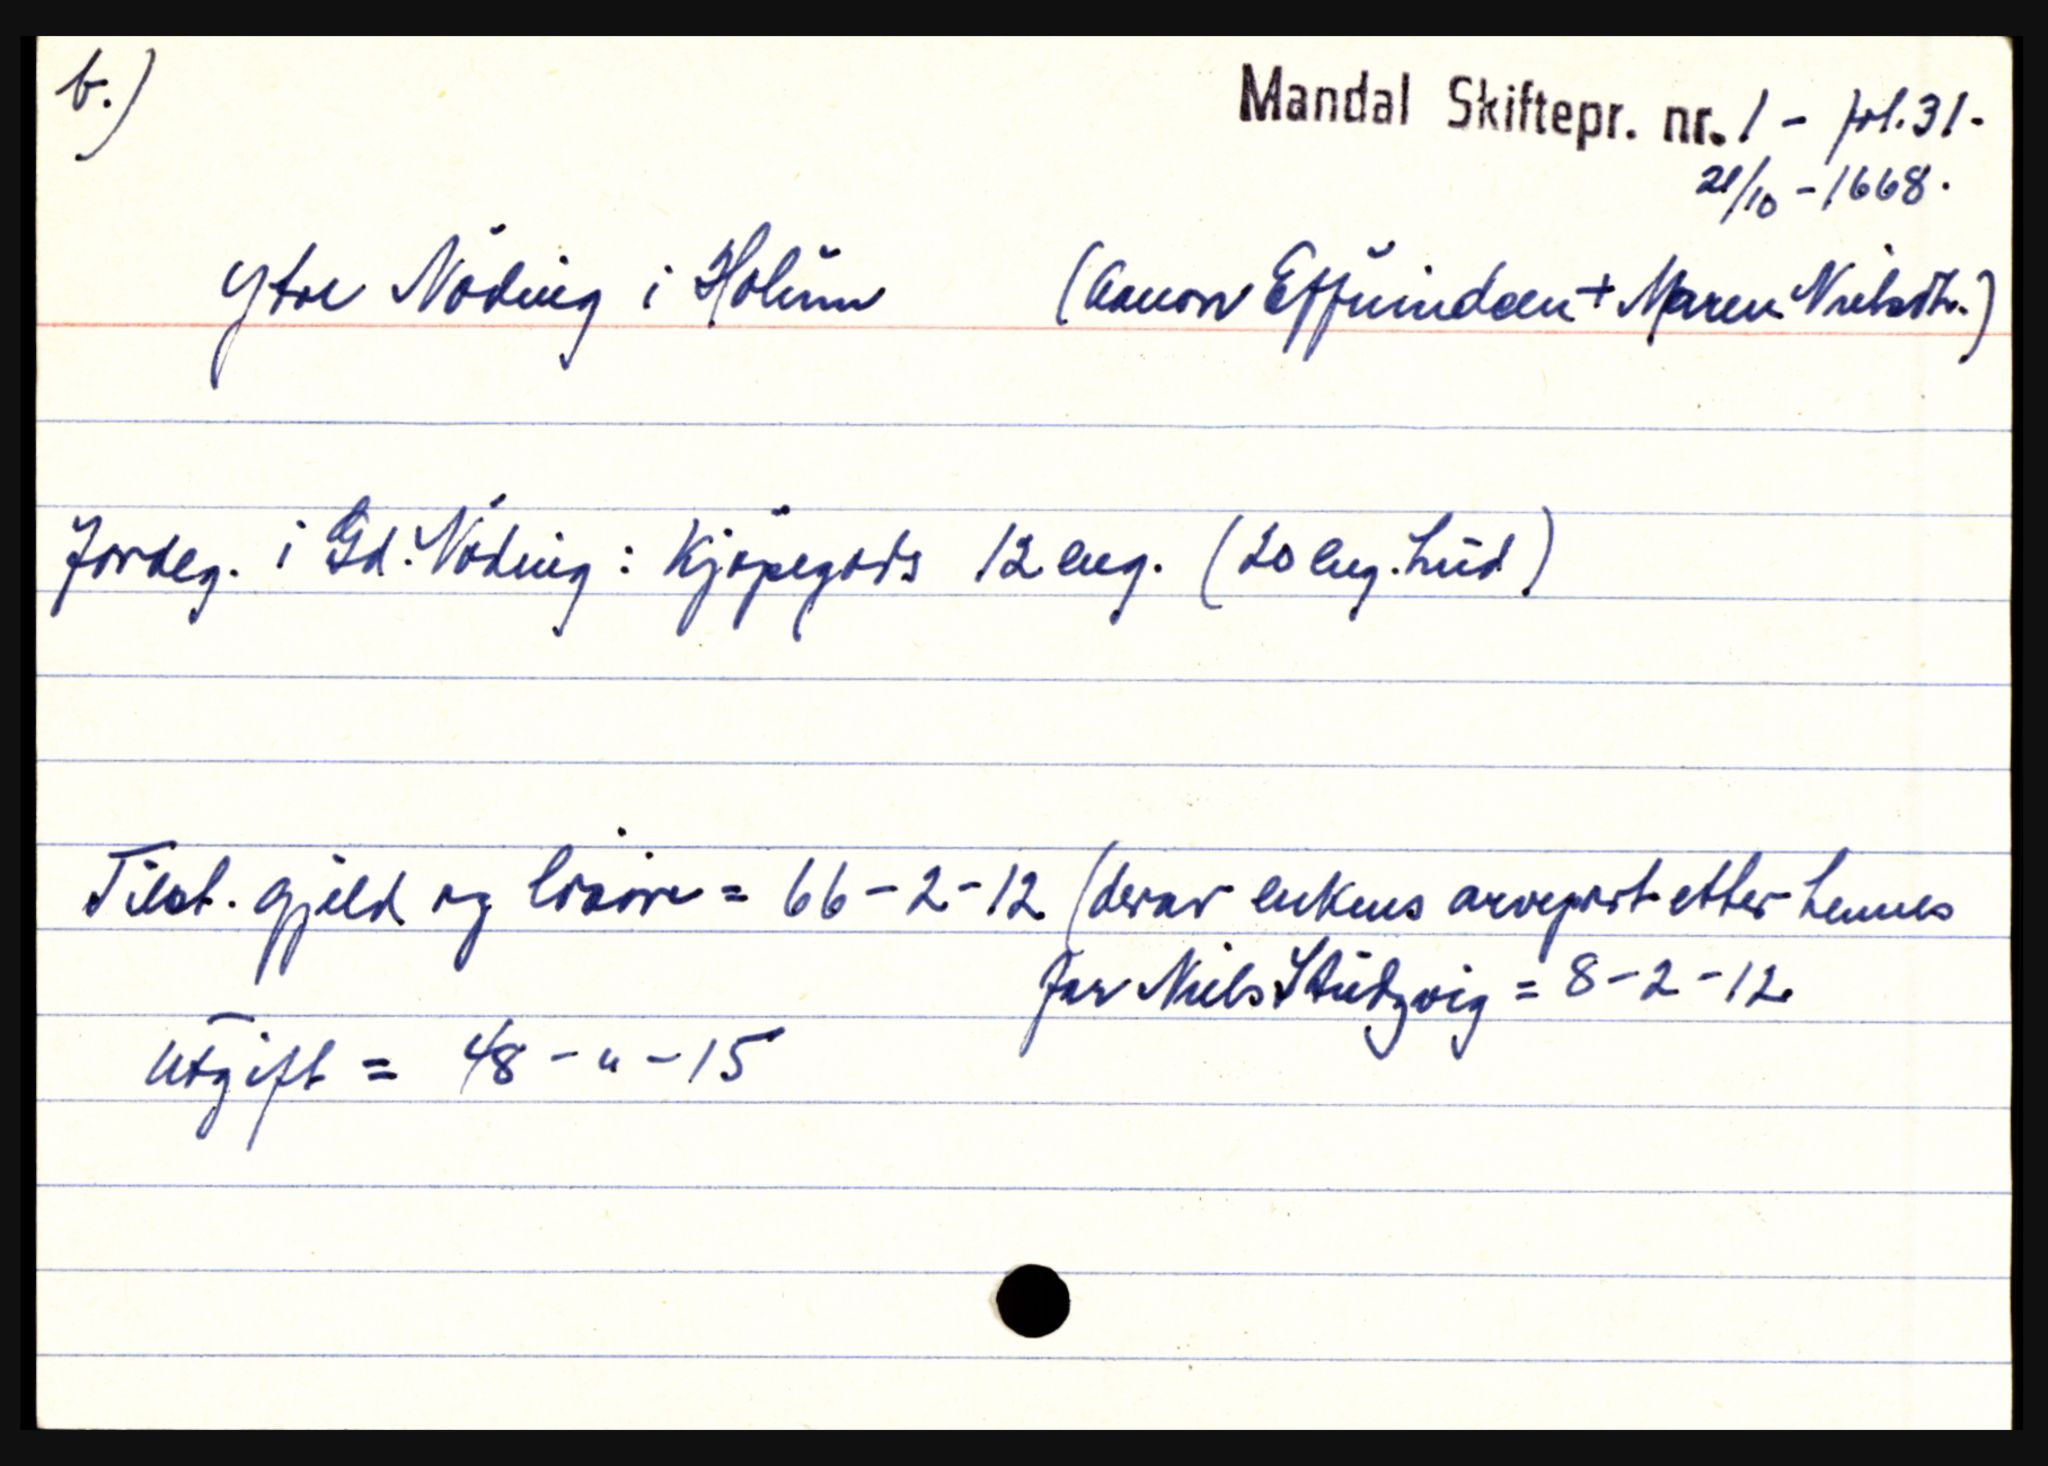 b.)
Mandal Skiftepr. nr. 1 - fol. 31 -
21/10 - 1668.
Ytre Nöding i Holum (Gunon Effuindsen + Maren Nielsdtr.)
Jordeg. i Gd. Nöding: Kjöpegods 12 eng. (20 eng. hud)
Tilst. gjeld og lösöre = 66 - 2 - 12 (derav enkens arvepart etter hennes
far Niels Studzvig = 8 - 2 - 12.
Utgift = 48 - " - 15